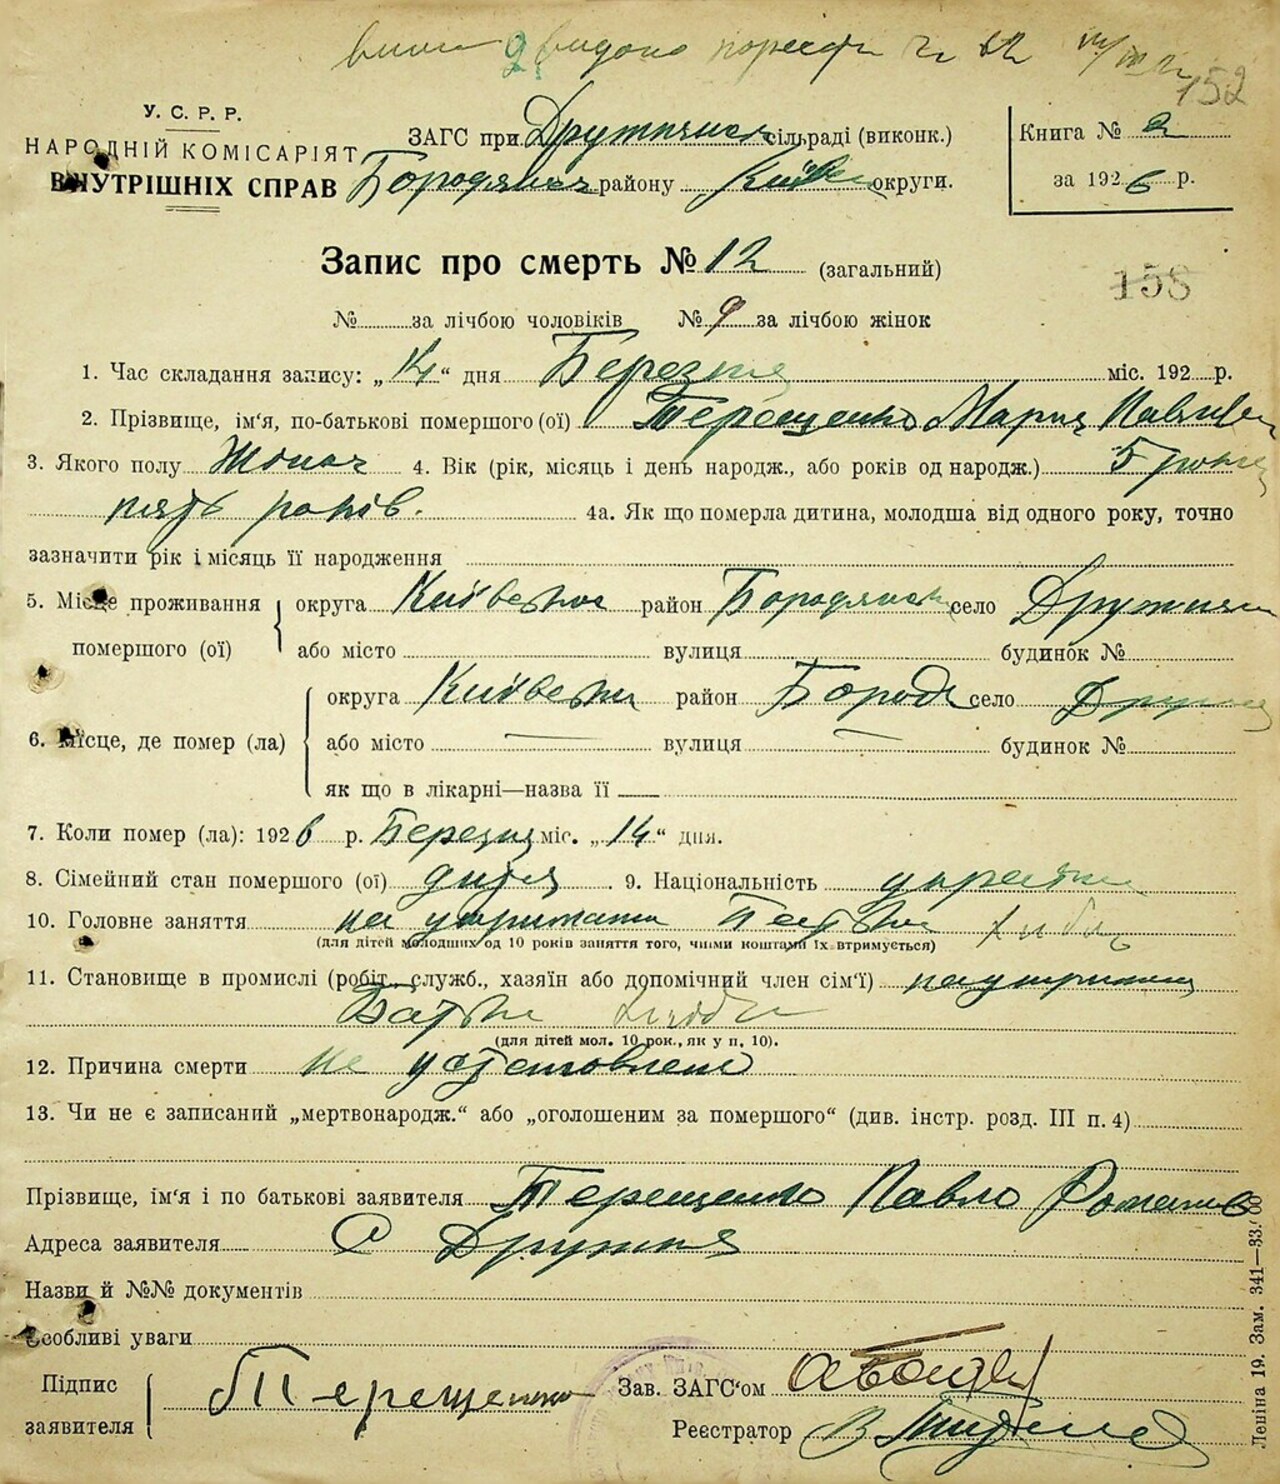 152
У. С. Р. Р.
НАРОДНІЙ КОМІСАРІЯТ
ВНУТРІШНІХ СПРАВ
ЗАГС при Дружнянск сільраді (виконк.)
Бородянск району Київськ округи.
Книга № 2
за 1926 р.
Запис про смерть № 12 (загальний)
158
№ за лічбою чоловіків № 9 за лічбою жінок
1. Час складання запису: „14“ дня Березня міс. 192 р.
2. Прізвище, ім‘я, по-батькові помершого (ої) Терещенко Мария Павлівна
3. Якого полу Жіноч 4. Вік (рік, місяць і день народж., або років од народж.) 5 років
пять років. 4а. Як що померла дитина, молодша від одного року, точно
зазначити рік і місяць її народження
5. Місце проживання помершого (ої) округа Київська район Бородянськ село Дружня
або місто вулиця будинок №
6. Місце, де помер (ла) округа Київська район Бород село Дружня
або місто — вулиця — будинок №
як що в лікарні—назва її
7. Коли помер (ла): 1926 р. Березня міс. „14“ дня.
8. Сімейний стан помершого (ої) дитя 9. Національність
10. Головне заняття на утриманні Батька
(для дітей молодших од 10 років заняття того, чиїми коштами їх втримується)
11. Становище в промислі (робіт. служб., хазяїн або допомічний член сім‘ї) наутриманні
Батька
(для дітей мол. 10 рок., як у п. 10).
12. Причина смерти не установлено
13. Чи не є записаний „мертвонародж.“ або „оголошеним за помершого“ (див. інстр. розд. III п. 4)
Прізвище, ім‘я і по батькові заявителя Терещенко Павло Романов
Адреса заявителя С Дружня
Назви й №№ документів
Особливі уваги
Підпис заявителя Терещенко
Зав. ЗАГС‘ом
Реєстратор
Леніна 19. Зам. 341—33.